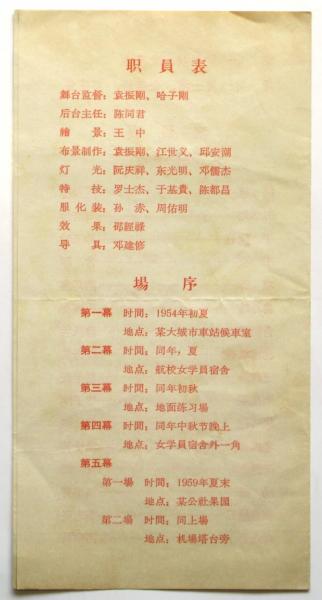 职员表
舞台监督：袁振剛、哈子剛
后台主任：陈同君
繪景：王中
布景制作：袁振剛、江世义、邱安瀾
灯光：阮庆祥、东光明、邓儒杰
特技：罗士杰、于基貴、陈都昌
服化装：孙赤、周佑明
效果：邵經祿
导具：邓建修
場序
第一幕 时間：1954年初夏
地点：某大城市車站候車室
第二幕 时間：同年，夏
地点：航校女学員宿舍
第三幕 时間：同年初秋
地点：地面练习場
第四幕 时間：同年中秋节晚上
地点：女学員宿舍外一角
第五幕
第一場 时間：1959年夏末
地点：某公社果園
第二場 时間：同上場
地点：机場塔台旁